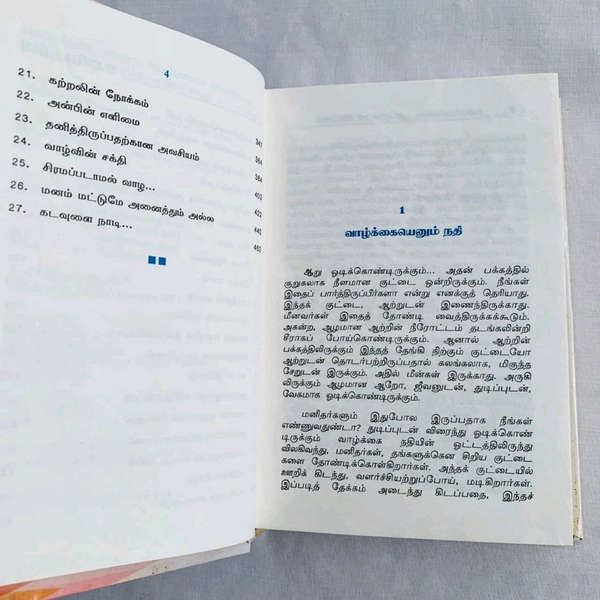 4
21. கற்றலின் நோக்கம்
22. அன்பின் எளிமை
23. தனித்திருப்பதற்கான அவசியம் 347
24. வாழ்வின் சக்தி 364
25. சிரமப்படாமல் வாழ... 384
26. மனம் மட்டுமே அனைத்தும் அல்ல 403
27. கடவுளை நாடி... 423
440
463
1
வாழ்க்கையெனும் நதி
ஆறு ஓடிக்கொண்டிருக்கும்... அதன் பக்கத்தில்
குறுகலாக நீளமான குட்டை ஒன்றிருக்கும். நீங்கள்
இதைப் பார்த்திருப்பீர்களா என்று எனக்குத் தெரியாது.
இந்தக் குட்டை, ஆற்றுடன் இணைந்திருக்காது.
மீனவர்கள் இதைத் தோண்டி வைத்திருக்கக்கூடும்.
அகன்ற, ஆழமான ஆற்றின் நீரோட்டம் தடங்கலின்றி
சீராகப் போய்கொண்டிருக்கும். ஆனால் ஆற்றின்
பக்கத்திலிருக்கும் இந்தத் தேங்கி நிற்கும் குட்டையோ
ஆற்றுடன் தொடர்பற்றிருப்பதால் கலங்கலாக, மிகுந்த
சேறுடன் இருக்கும். அதில் மீன்கள் இருக்காது. அருகி
லிருக்கும் ஆழமான ஆறோ, ஜீவனுடன், துடிப்புடன்,
வேகமாக ஓடிக்கொண்டிருக்கும்.
மனிதர்களும் இதுபோல இருப்பதாக நீங்கள்
எண்ணுவதுண்டா? துடிப்புடன் விரைந்து ஓடிக்கொண்
டிருக்கும் வாழ்க்கை நதியின் ஓட்டத்திலிருந்து
விலகிவந்து, மனிதர்கள், தங்களுக்கென சிறிய குட்டை
களை தோண்டிக்கொள்கிறார்கள். அந்தக் குட்டையில்
ஊறிக் கிடந்து, வளர்ச்சியற்றுப்போய், மடிகிறார்கள்.
இப்படித் தேக்கம் அடைந்து கிடப்பதை, இந்தச்